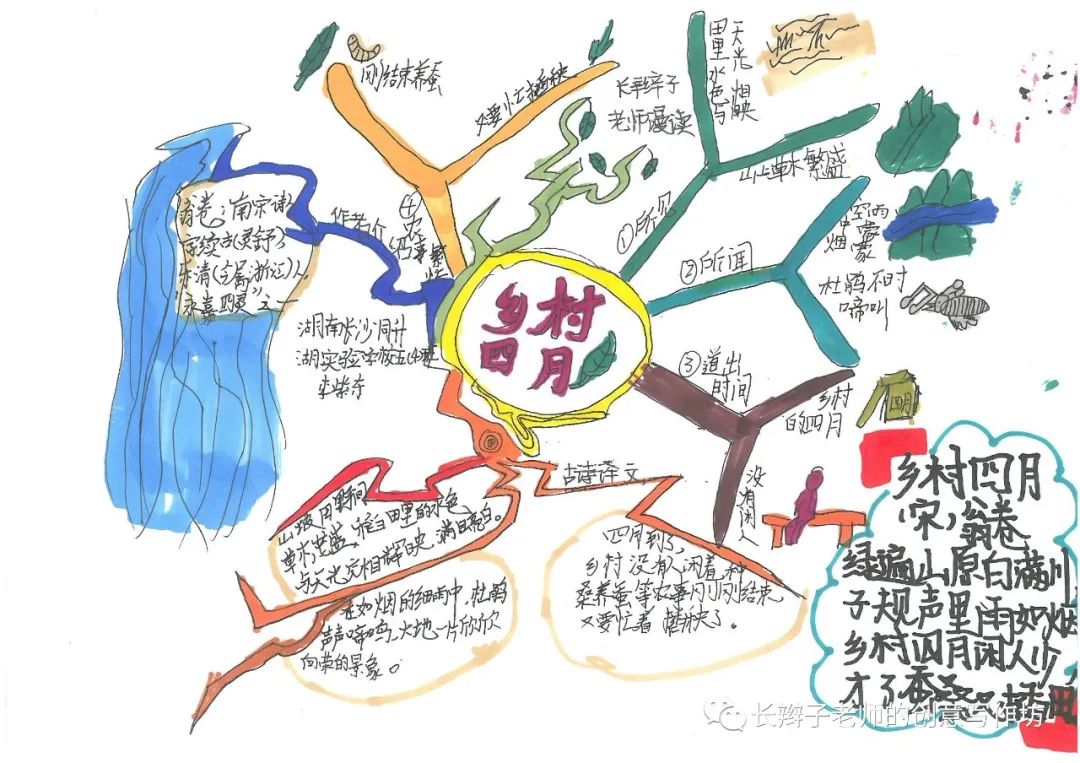 乡村
四月
①所见
田里水色与
天光相映
山上草木繁盛
②所闻
空中烟
雨蒙蒙
杜鹃不时
啼叫
③道出
时间
乡村
的四月
四月
没有闲人
④农事繁忙
刚结束养蚕
又要忙插秧
长辫子
老师漫读
作者介
翁卷：南宋诗人
字续古(灵舒)
永嘉四灵
湖南长沙浏
古诗译文
山坡田野间
草木茂盛，稻田里的水色
与天光交相辉映，满目亮白。
在如烟的细雨中，杜鹃
声声啼鸣，大地一片欣欣
向荣的景象。
四月到了，
乡村没有人闲着，种
桑养蚕等农事刚刚结束
又要忙着插秧了。
乡村四月
(宋)翁卷
绿遍山原白满川
子规声里雨如烟
乡村四月闲人少，
才了蚕桑又插田
长辫子老师的创意写作坊